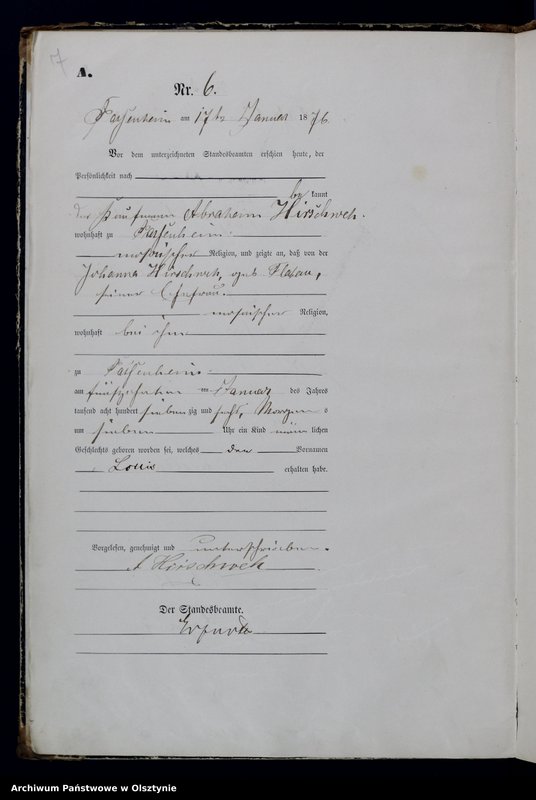 7
A.
Nr. 6.
Passenheim am 17ten Januar 1876.
Vor dem unterzeichneten Standesbeamten erschien heute, der
Persönlichkeit nach
be kannt
der Kaufmann Abraham Hirschweh.
wohnhaft zu Passenheim
mosaischer Religion, und zeigte an, daß von der
Johanna Hirschweh, geb. Flatau,
seiner Ehefrau.
mosaischer Religion,
wohnhaft bei ihm
zu Passenheim
am fünfzehnten Januar des Jahres
tausend acht hundert sieben zig und sechs, Morgen s
um sieben Uhr ein Kind männ lichen
Geschlechts geboren worden sei, welches den Vornamen
Louis erhalten habe.
Vorgelesen, genehmigt und unterschrieben.
A Hirschweh
Der Standesbeamte.
Archiwum Państwowe w Olsztynie